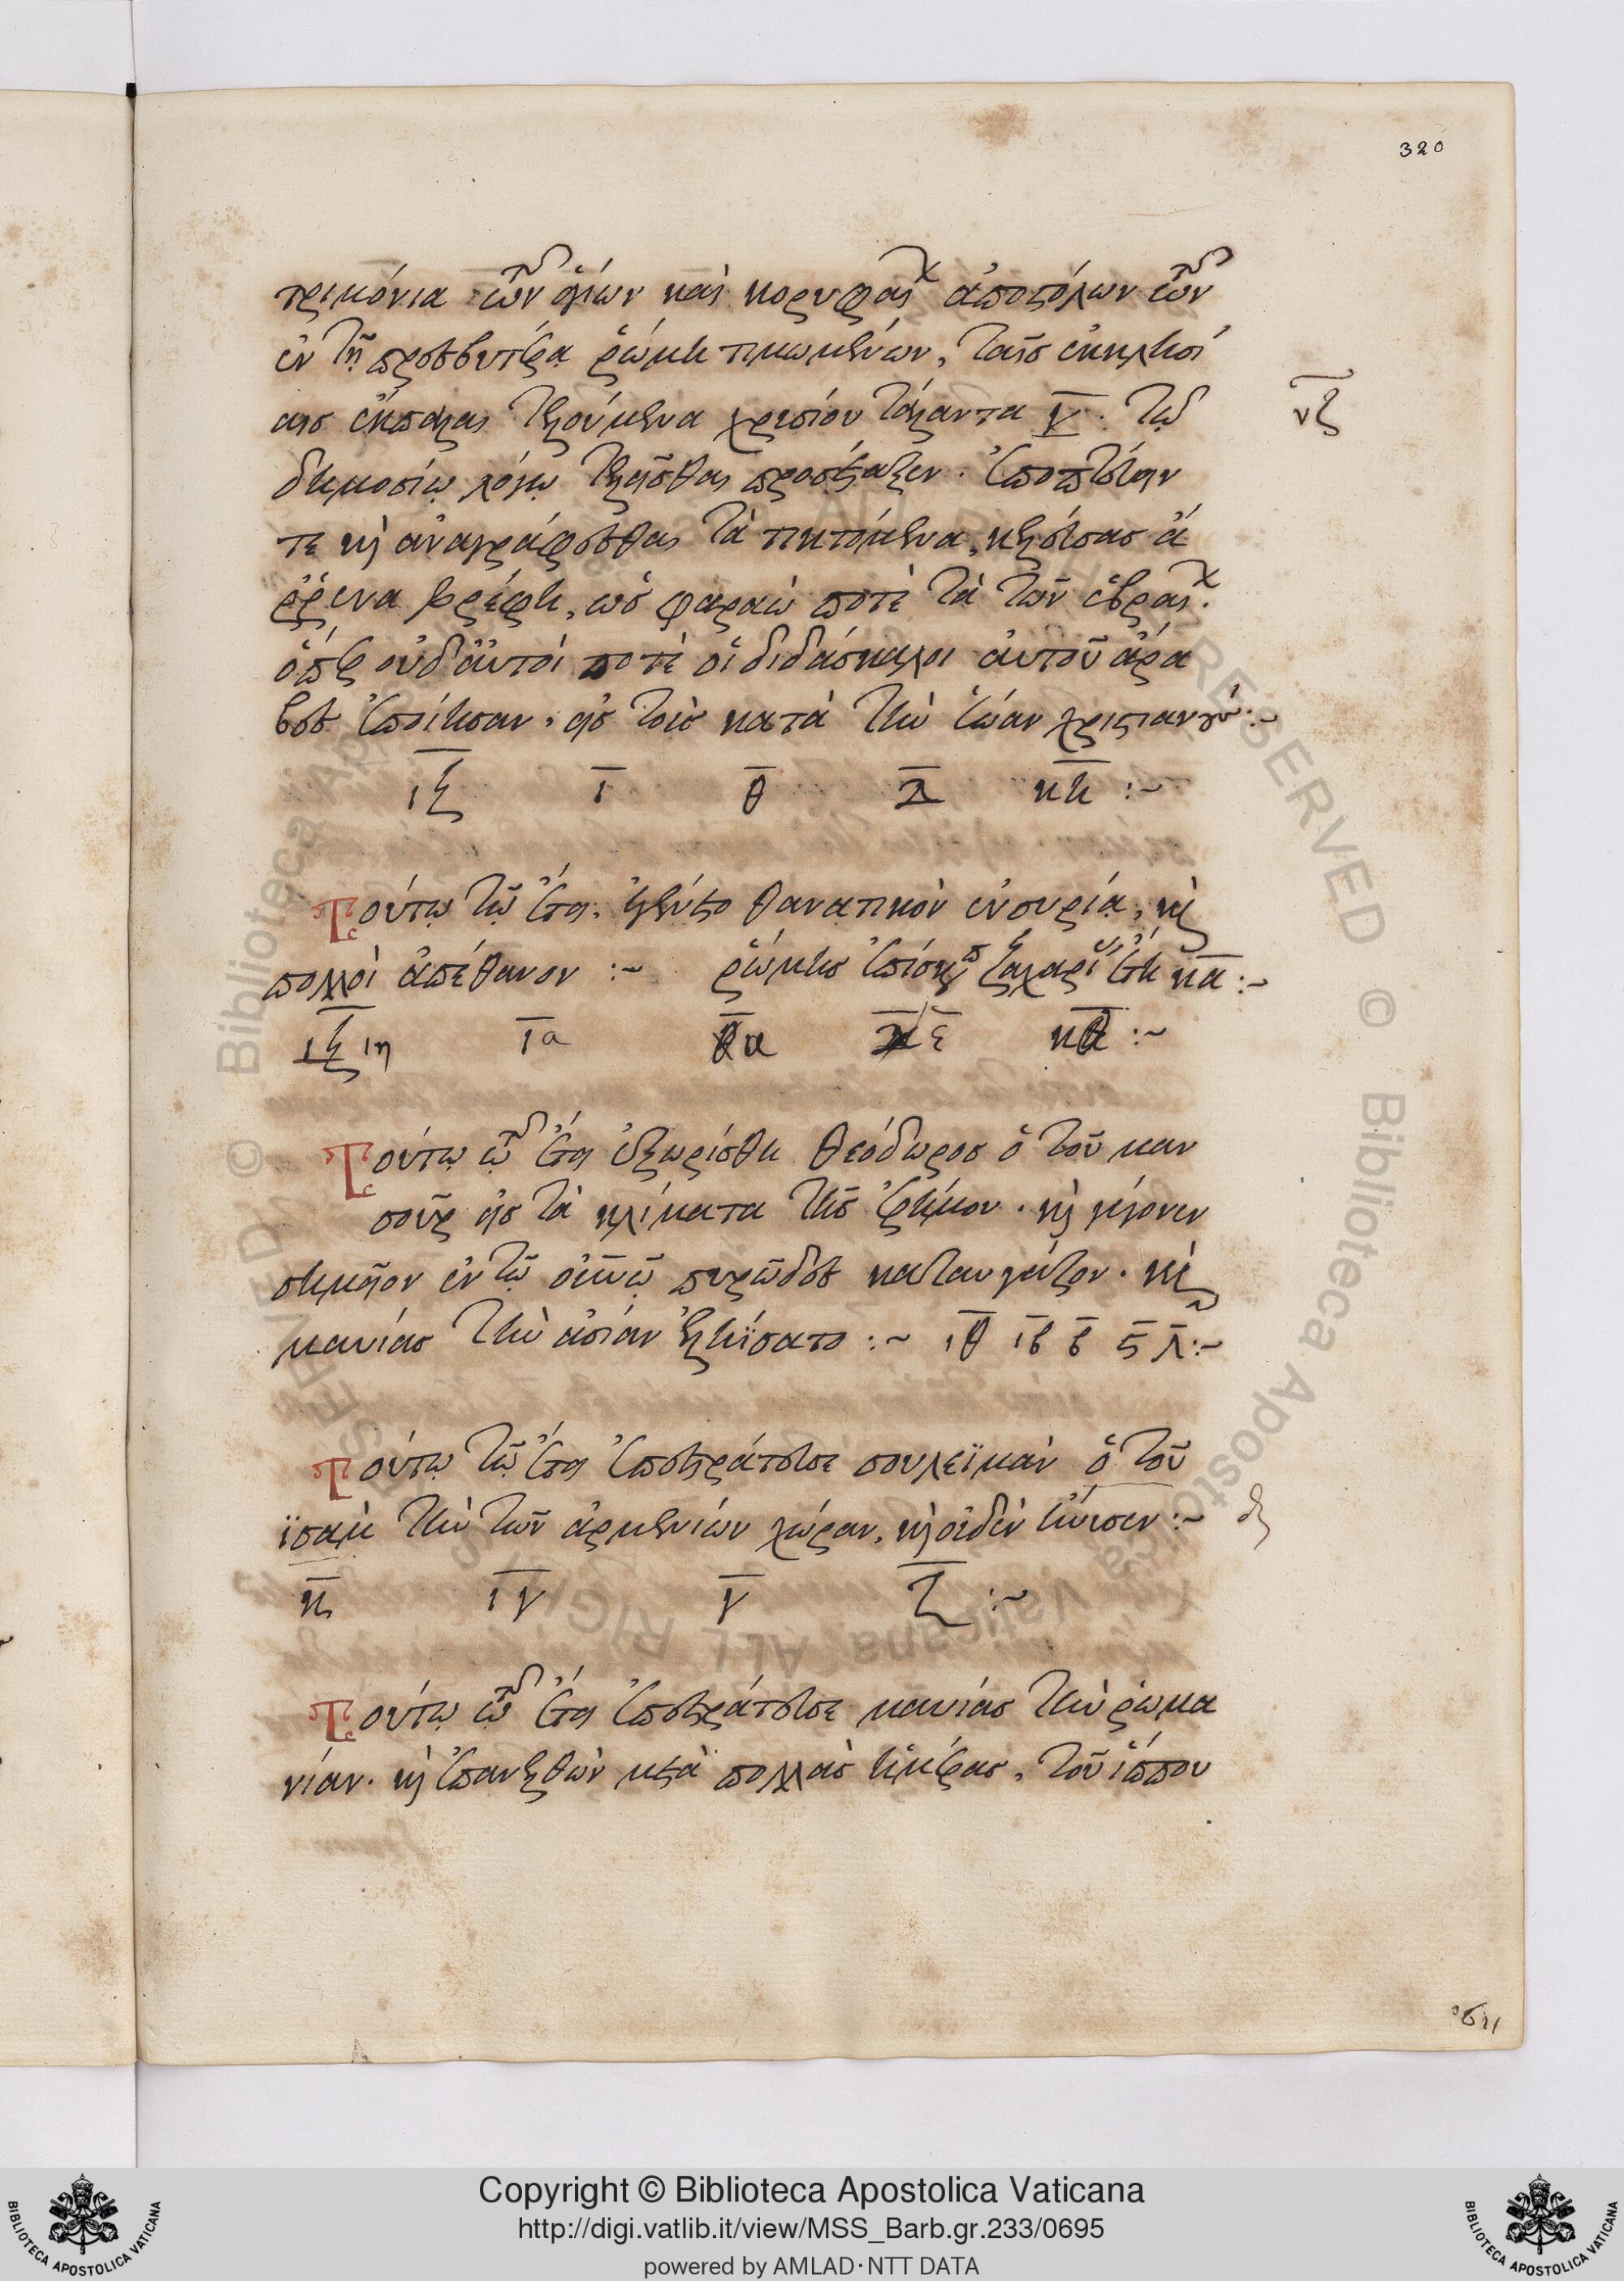 320
τριμόνια τῶν ἁγίων καὶ κορυφαί^χ ἀποστόλων τῶν
ἐν τῇ πρεσβυτέρα ῥώμη τιμωμένων, ταῖς ἐκκλησί
αις ἔκπαλαι τελούμενα χρυσίου τάλαντα γ̄. τῶ
νζ
δημοσίω λόγω τελεῖσθαι προσέταξεν. ἐποπτεύειν
τε κὶ ἀναγράφεσθαι τὰ τικτόμενα, κελεύσας ἄ
ῤῥενα βρέφη, ὡς φαραὼ ποτὲ τὰ τῶν ἑβραί^χ.
ὅπερ οὐδ' ἀυτοί ποτὲ οἱ διδάσκαλοι ἀυτοῦ ἄρα
βες ἐποίησαν, εἰς τοὺς κατὰ τὴν ἑώαν χριστιανού:~
ιζ ι θ δ κη :~
Τούτω τῶ ἔτει, ἐγένετο θανατικὸν ἐν συρία, κὶ
πολλοὶ ἀπέθανον :~ ῥώμης ἐπίσκοπ ζαχαρί ἔτη κα :~
ιζ ιη ια α ε κθ :~
Τούτω τῶ ἔτει ἐξωρίσθη θεόδωρος ὁ τοῦ μαν
σοῦρ εἰς τὰ κλίματα τῆς ἐρήμου. κὶ γέγονεν
σημεῖον ἐν τῶ οὐνῶ πυρῶδες καταυγάζον. κὶ
μαυίας τὴν ἀσίαν ἐληΐσατο :~ ιθ ιβ β ς λ :~
Τούτω τῶ ἔτει ἐπεστράτευσε σουλεϊμὰν ὁ τοῦ
ϊσαμ τὴν τῶν ἀρμενίων χώραν, κὶ οὐδὲν ἤνυσεν :~
κ ιγ γ ζ :~
Τούτω τῶ ἔτει ἐπεστράτευσε μαυίας τὴν ῥωμα
νίαν. κὶ ἐπανελθὼν μετὰ πολλὰς ἡμέρας, τοῦ ἵππου
Copyright © Biblioteca Apostolica Vaticana
http://digi.vatlib.it/view/MSS_Barb.gr.233/0695
powered by AMLAD·NTT DATA
BIBLIOTECA APOSTOLICA VATICANA
BIBLIOTECA APOSTOLICA VATICANA